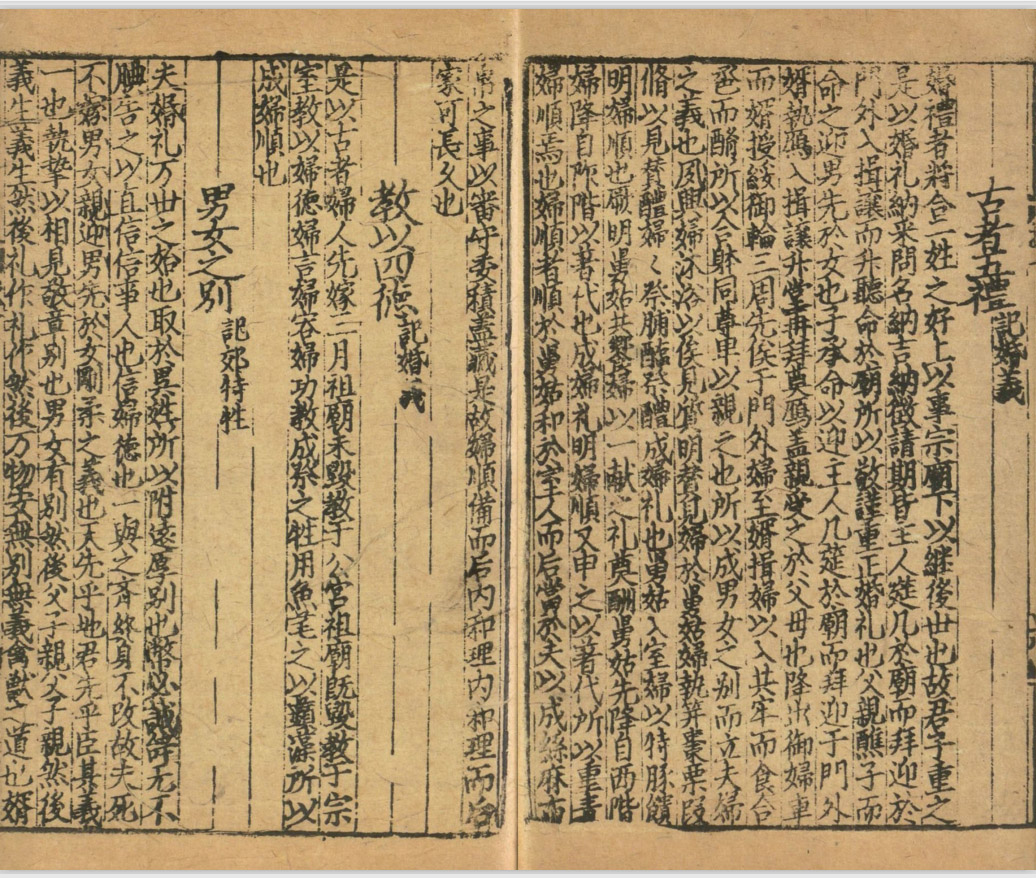 古者昏禮 記婚義
婚禮者將合二姓之好上以事宗廟下以継後世也故君子重之
是以婚礼納采問名納吉納徴請期皆主人筵几於廟而拜迎於
門外入揖讓而升聽命於廟所以敬謹重正婚礼也父親醮子而
命之迎男先於女也子承命以迎主人几筵於廟而拜迎于門外
婿執鴈入揖讓升堂再拜奠鴈盖親受之於父毋也降出御婦車
而婿授綏御輪三周先俟于門外婦至婿揖婦以入共牢而食合
卺而酳所以合躰同尊卑以親之也所以成男女之别而立夫婦
之義也夙興婦沐浴以俟見質明賛見婦於舅姑婦執笲棗栗段
脩以見賛醴婦〻祭脯醢祭醴成婦礼也舅姑入室婦以特豚饋
明婦順也厥明舅姑共饗婦以一献之礼奠酬舅姑先降自西階
婦降自阼階以著代也成婦礼明婦順又申之以著代所以重責
婦順焉也婦順者順於舅姑和於室人而后當於夫以成絲麻布
帛之事以審守委積盖藏是故婦順備而后内和理内和理而后
家可長久也
教以四德 記婚義
是以古者婦人先嫁三月祖廟未毀教于公宮祖廟既毀教于宗
室教以婦德婦言婦容婦功教成祭之牲用魚芼之以蘋藻所以
成婦順也
男女之别 記郊特牲
夫婚礼万世之始也取於異姓所以附遠厚别也幣必誠辞无不
腆告之以直信信事人也信婦德也一與之齊終身不改故夫死
不嫁男女親迎男先於女剛柔之義也天先乎地君先乎臣其義
一也執摯以相見敬章别也男女有别然後父子親父子親然後
義生義生然後礼作礼作然後万物安無别無義禽獣〻道也婿